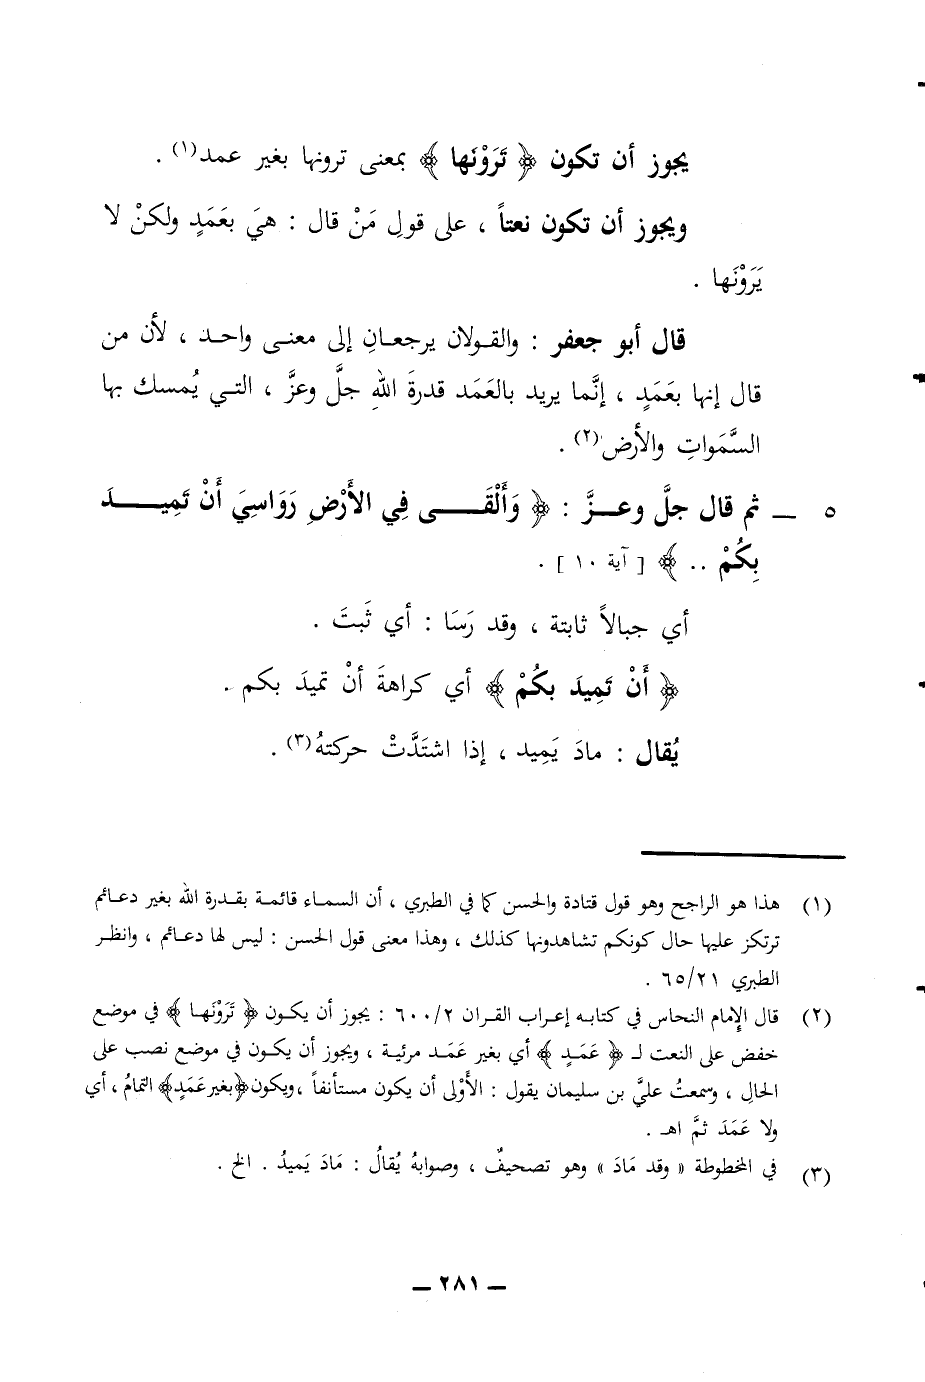 يجوز أن تكون ﴿ تَرَوْنَها ﴾ بمعنى ترونها بغير عمد(١) .
ويجوز أن تكون نعتاً ، على قولِ مَنْ قال : هيَ بعَمَدٍ ولكنْ لا
يَرَوْنَها .
قال أبو جعفر : والقولان يرجعانِ إلى معنى واحد ، لأن من
قال إنها بعَمَدٍ ، إنَّما يريد بالعَمَد قدرةَ اللهِ جلَّ وعزَّ ، التي يُمسك بها
السَّمَواتِ والأرض(٢) .
٥ ــ ثم قال جلَّ وعزَّ : ﴿ وَأَلْقَى فِي الأَرْضِ رَوَاسِيَ أَنْ تَمِيدَ
بِكُمْ .. ﴾ [ آية ١٠ ] .
أي جبالاً ثابتة ، وقد رَسَا : أي ثَبتَ .
﴿ أَنْ تَمِيد بكُمْ ﴾ أي كراهةَ أنْ تميدَ بكم .
يُقال : مادَ يَمِيد ، إذا اشتَدَّتْ حركتهُ(٣) .
(١) هذا هو الراجح وهو قول قتادة والحسن كما في الطبري ، أن السماء قائمة بقدرة الله بغير دعائم
ترتكز عليها حال كونكم تشاهدونها كذلك ، وهذا معنى قول الحسن : ليس لها دعائم ، وانظر
الطبري ٦٥/٢١ .
(٢) قال الإمام النحاس في كتابه إعراب القران ٦٠٠/٢ : يجوز أن يكون ﴿ تَرَوْنَها ﴾ في موضع
خفض على النعت لـ ﴿ عَمَدٍ ﴾ أي بغير عَمَد مرئية ، ويجوز أن يكون في موضع نصب على
الحالِ ، وسمعتُ عليَّ بن سليمان يقول : الأَوْلى أن يكون مستأنفاً ،ويكون﴿بغيرعَمَدٍ﴾ التمامُ ، أي
ولا عَمَدَ ثمَّ اهـ .
(٣) في المخطوطة « وقد مَادَ » وهو تصحيفٌ ، وصوابهُ يُقالُ : مَادَ يَميدُ . الخ .
ــ ٢٨١ ــ